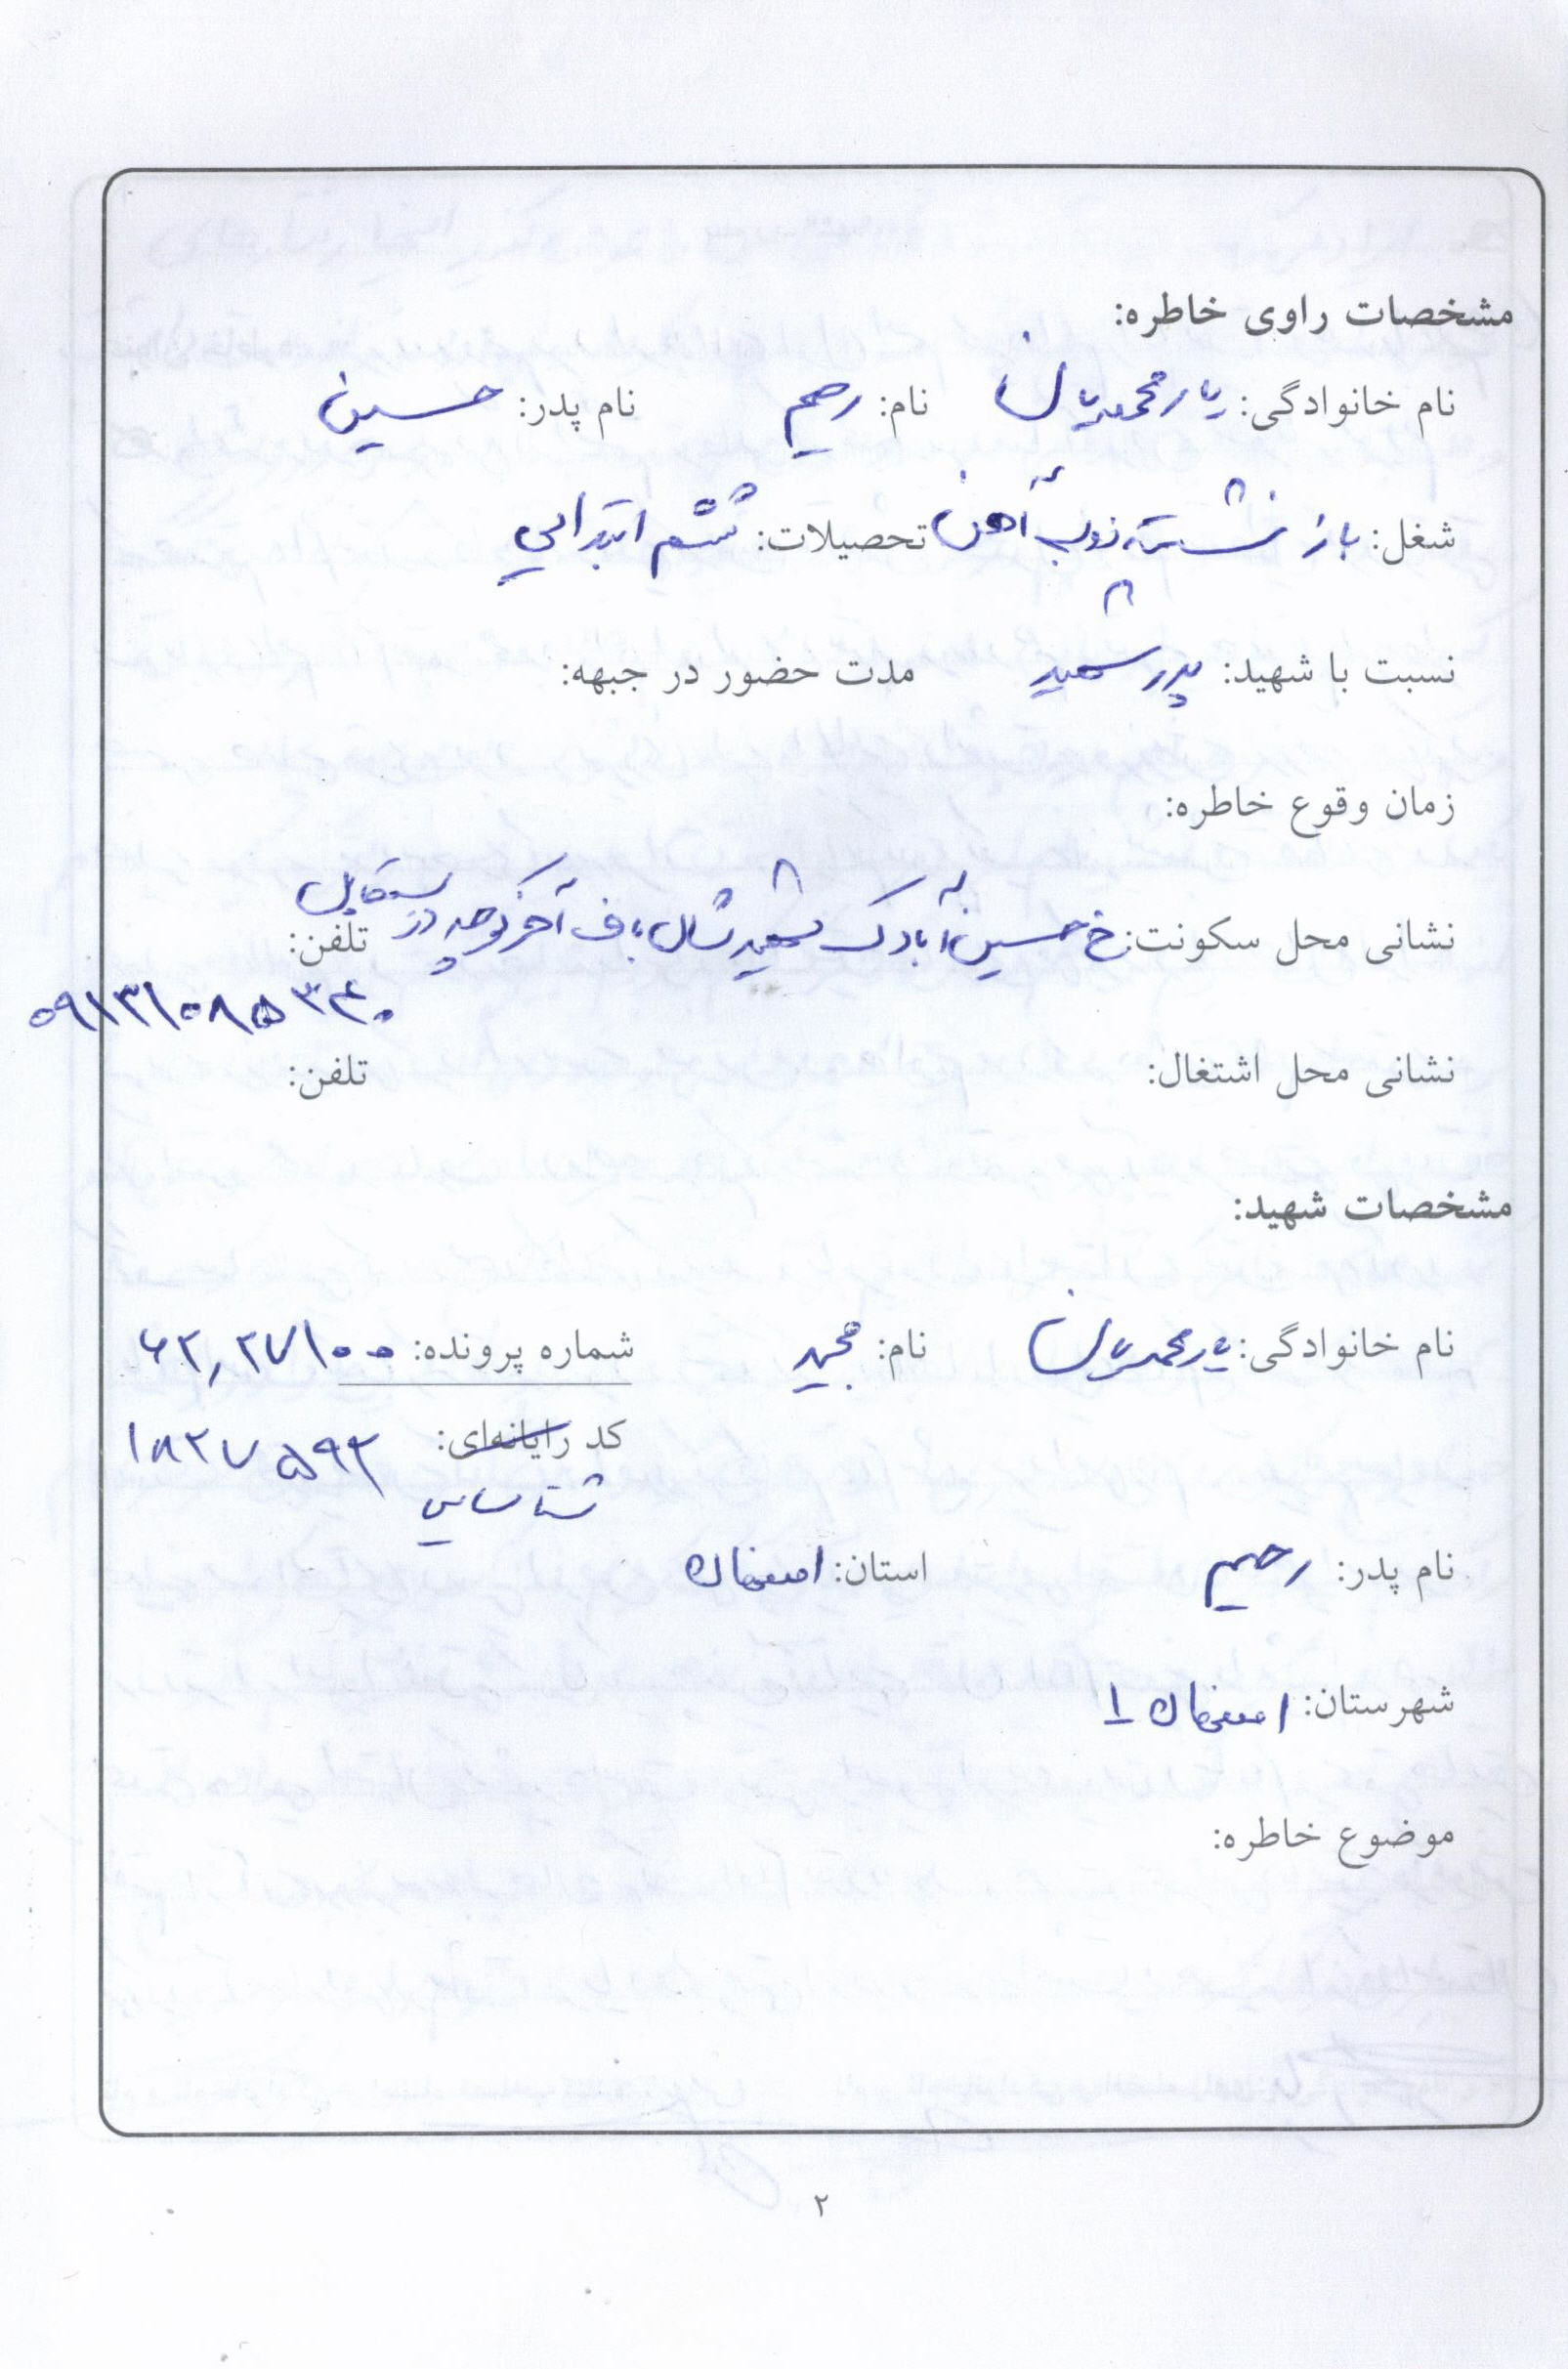 مشخصات راوی خاطره:
نام خانوادگی: یارمحمدیان نام: رحیم نام پدر: حسین
شغل: بازنشسته ذوب آهن تحصیلات: ششم ابتدایی
نسبت با شهید: پدر شهید مدت حضور در جبهه:
زمان وقوع خاطره:
نشانی محل سکونت: خ حسین آباد ک شهید شال باف آخر کوچه در تلفن:
۰۹۱۳۱۰۸۵۳۴۰
نشانی محل اشتغال: تلفن:
مشخصات شهید:
نام خانوادگی: یارمحمدیان نام: مجید شماره پرونده: ۶۲,۲۷۱۰۰
کد رایانه‌ای: ۱۸۲۷۵۹۳
شناسایی
نام پدر: رحیم استان: اصفهان
شهرستان: اصفهان ۱
موضوع خاطره:
۲